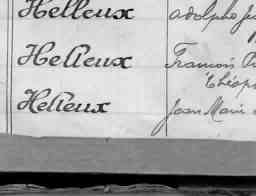 Helleux adolphe
Helieux Francois
Théop
Helieux Jean Marie